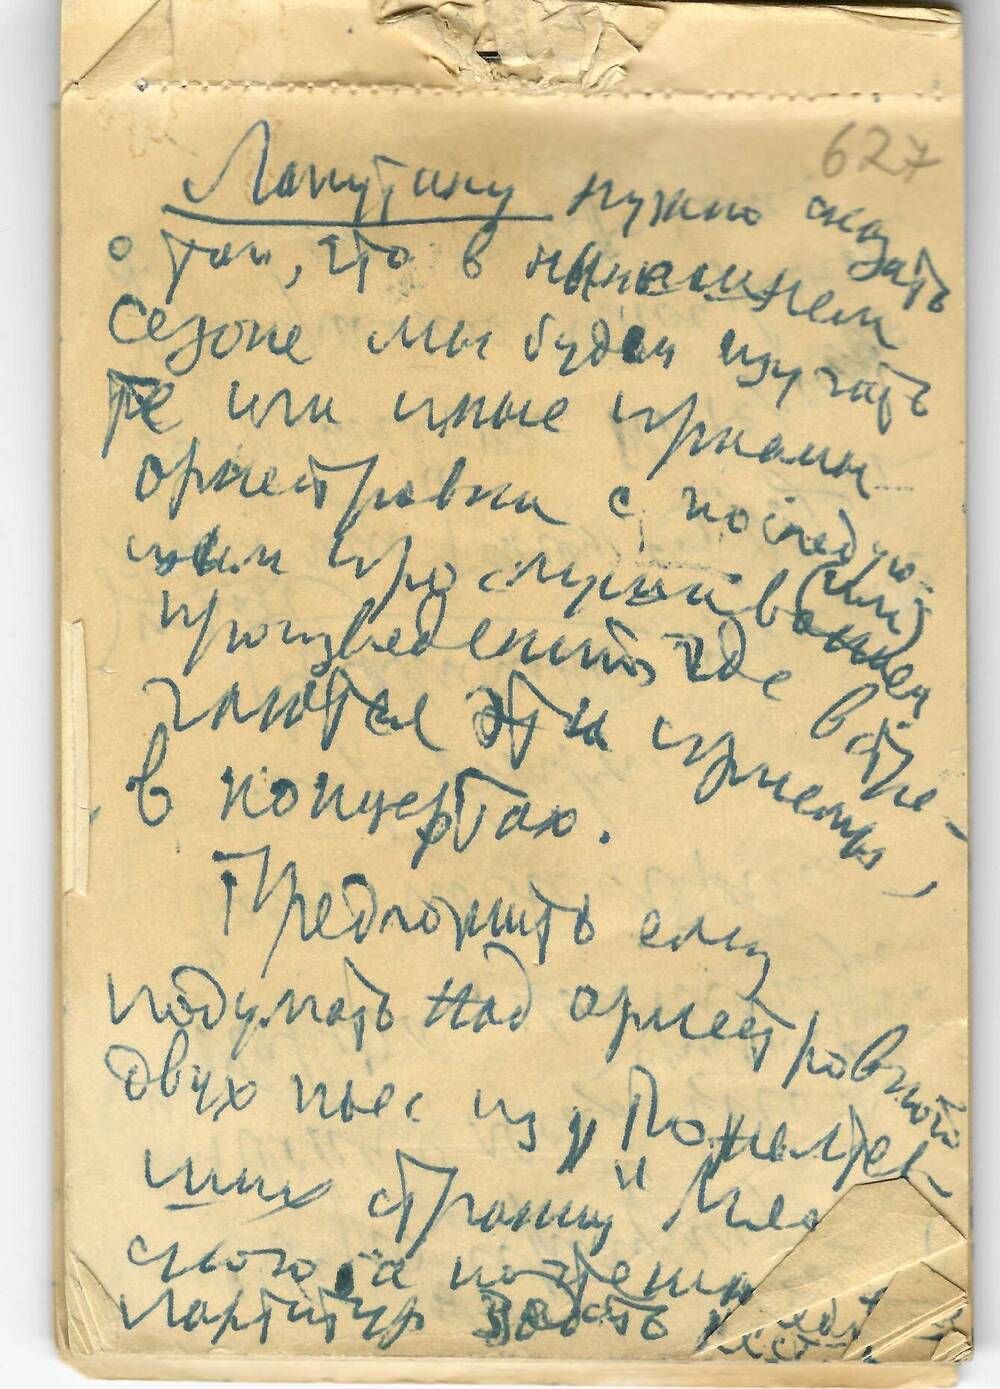 627
Лапутину нужно сказать
о том, что в нынешнем
сезоне мы будем изучать
те или иные приемы
оркестровки с последую-
щим прослушиванием
(или)
произведений, где встре-
чаются эти приемы,
в концертах.
Предложить ему
подумать над оркестровкой
двух пьес из „Пожелтев-
ших страниц" Мяс
ского, а
партитур